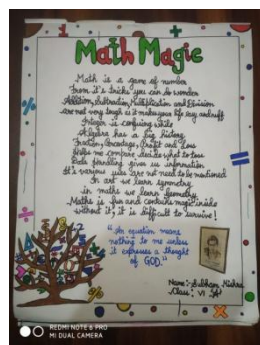 Math Magic
Math is a game of number
From it's tricks you can do wonder
Addition, Subtraction, Multiplication and Division
are not very tough as it makes your life easy and
Integer is confusing
Algebra has a big history
Fraction, Percentage, Profit and Loss
helps me compare, decide what to
Data handling gives us information
It's various uses are not need to be mentioned
In art we learn symmetry
in maths we learn Geometry
Maths is fun and contains magic inside
without it, it is difficult to survive!
"An equation means
nothing to me unless
it expresses a thought
of GOD."
Name:- Subham Mishra
Class:- VI 'A'
REDMI NOTE 8 PRO
MI DUAL CAMERA